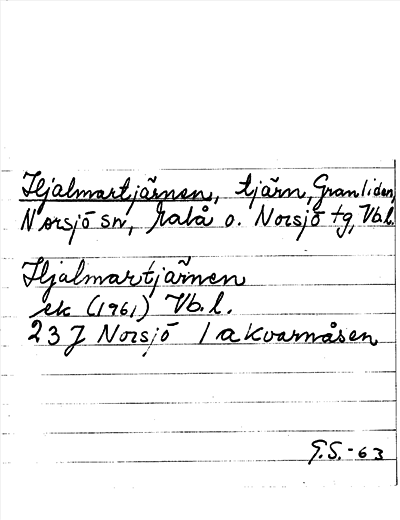 Hjalmartjärnen, tjärn, Granliden,
Norsjö sn, Malå o. Norsjö tg, Vb.l.
Hjalmartjärnen
ek (1961) Vb.l.
23 J Norsjö 1 a Kvarnåsen
G.S. -63